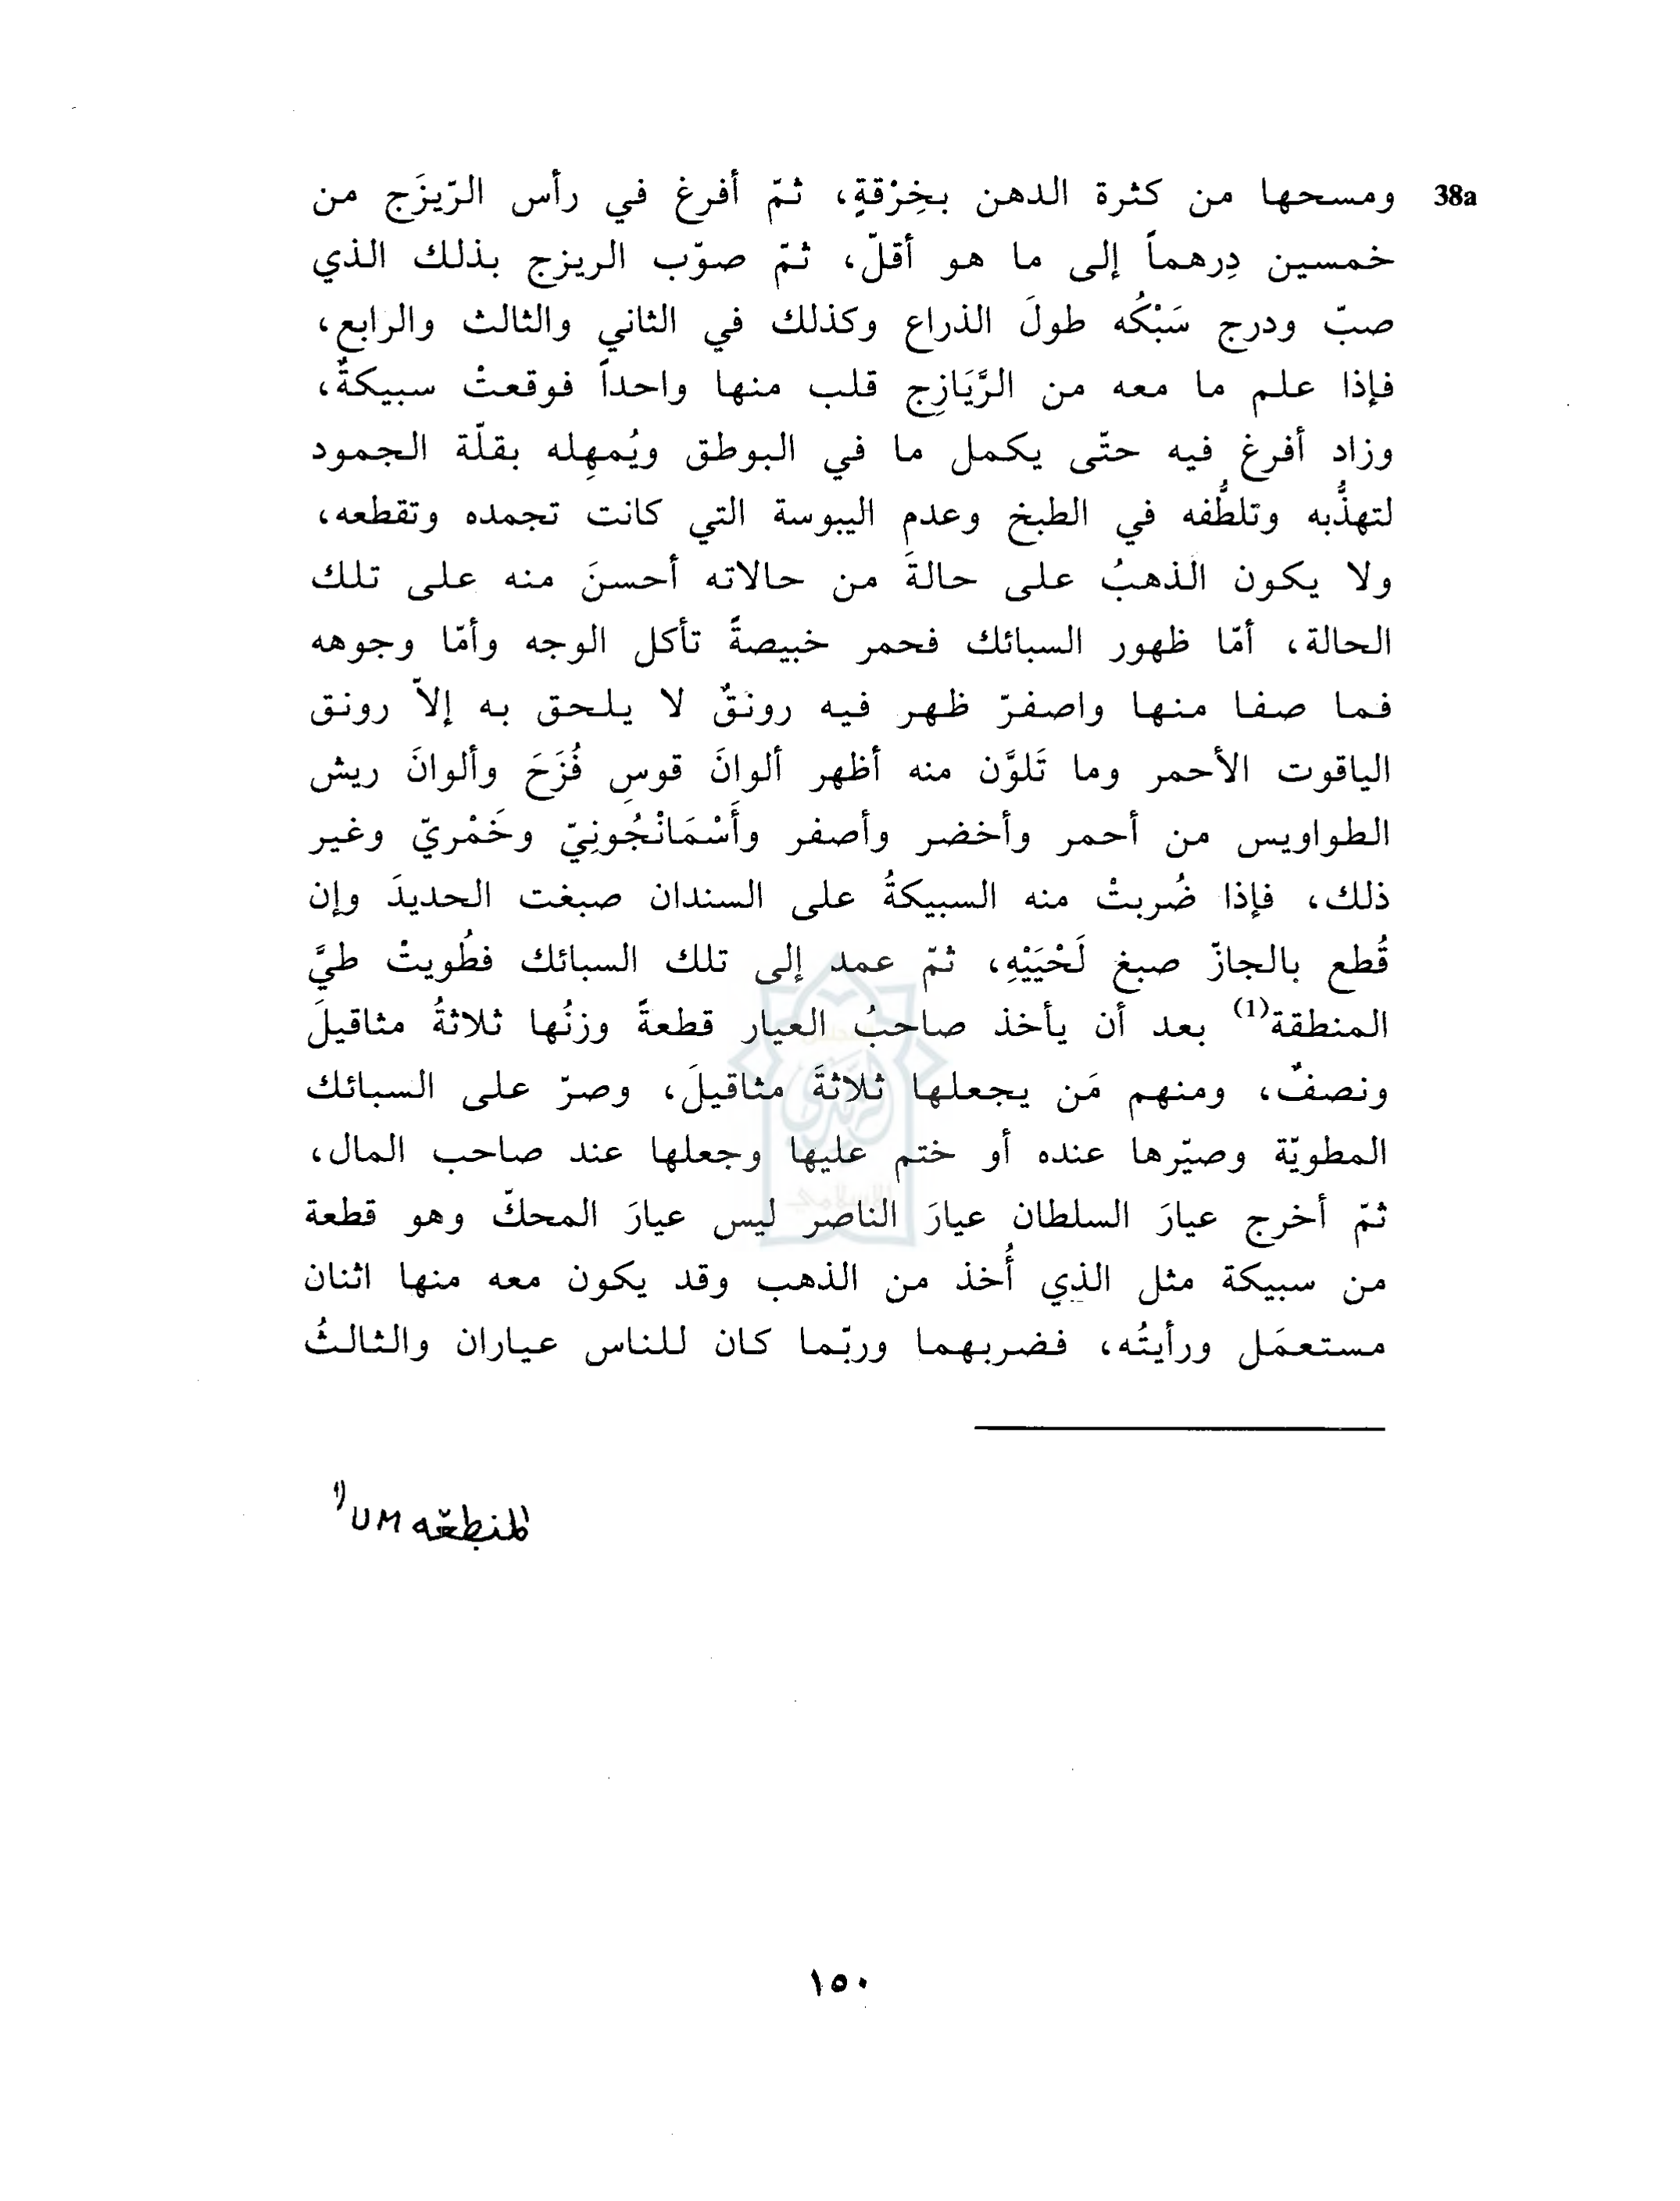 38a ومسحها من كثرة الدهن بخِرْقةٍ، ثمّ أفرغ في رأس الرّيزَج من
خمسين دِرهماً إلى ما هو أقلّ، ثمّ صوّب الريزج بذلك الذي
صبّ ودرج سَبْكُه طولَ الذراع وكذلك في الثاني والثالث والرابع،
فإذا علم ما معه من الرَّيَازِج قلب منها واحداً فوقعتْ سبيكةٌ،
وزاد أفرغ فيه حتّى يكمل ما في البوطق ويُمهِله بقلّة الجمود
لتهذُّبه وتلطُّفه في الطبخ وعدم اليبوسة التي كانت تجمده وتقطعه،
ولا يكون الذهبُ على حالةَ من حالاته أحسنَ منه على تلك
الحالة، أمّا ظهور السبائك فحمر خبيصةً تأكل الوجه وأمّا وجوهه
فما صفا منها واصفرّ ظهر فيه رونقٌ لا يلحق به إلاّ رونق
الياقوت الأحمر وما تَلوَّن منه أظهر ألوانَ قوسِ قُزَحَ وألوانَ ريش
الطواويس من أحمر وأخضر وأصفر وأَسْمَانْجُونِيّ وخَمْريّ وغير
ذلك، فإذا ضُربتْ منه السبيكةُ على السندان صبغت الحديدَ وإن
قُطع بالجازّ صبغ لَحْيَيْهِ، ثمّ عمد إلى تلك السبائك فطُويتْ طيَّ
المنطقة(1) بعد أن يأخذ صاحبُ العيار قطعةً وزنُها ثلاثةُ مثاقيلَ
ونصفٌ، ومنهم مَن يجعلها ثلاثةَ مثاقيلَ، وصرّ على السبائك
المطويّة وصيّرها عنده أو ختم عليها وجعلها عند صاحب المال،
ثمّ أخرج عيارَ السلطان عيارَ الناصر ليس عيارَ المحكّ وهو قطعة
من سبيكة مثل الذي أُخذ من الذهب وقد يكون معه منها اثنان
مستعمَل ورأيتُه، فضربهما وربّما كان للناس عياران والثالثُ
1) UM المنطقه
١٥٠